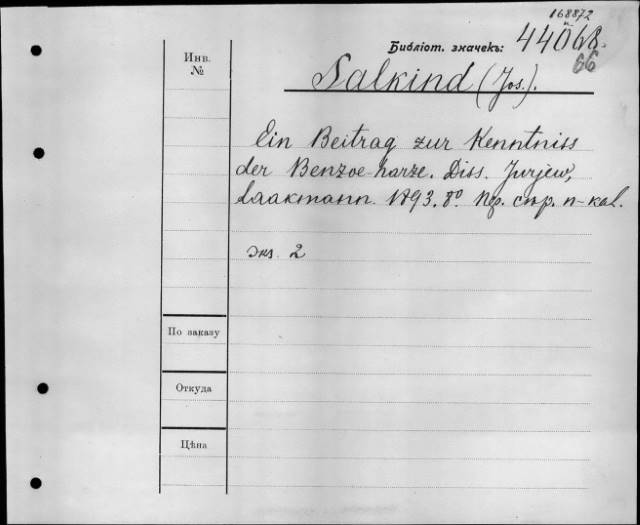 168872
Библіот. значекъ: 44068
66
Инв.
№
Salkind (Jos.).
Ein Beitrag zur Kenntniss
der Benzoe-harze. Diss. Jurjew,
Laakmann. 1893. 8º
экз. 2
По заказу
Откуда
Цѣна